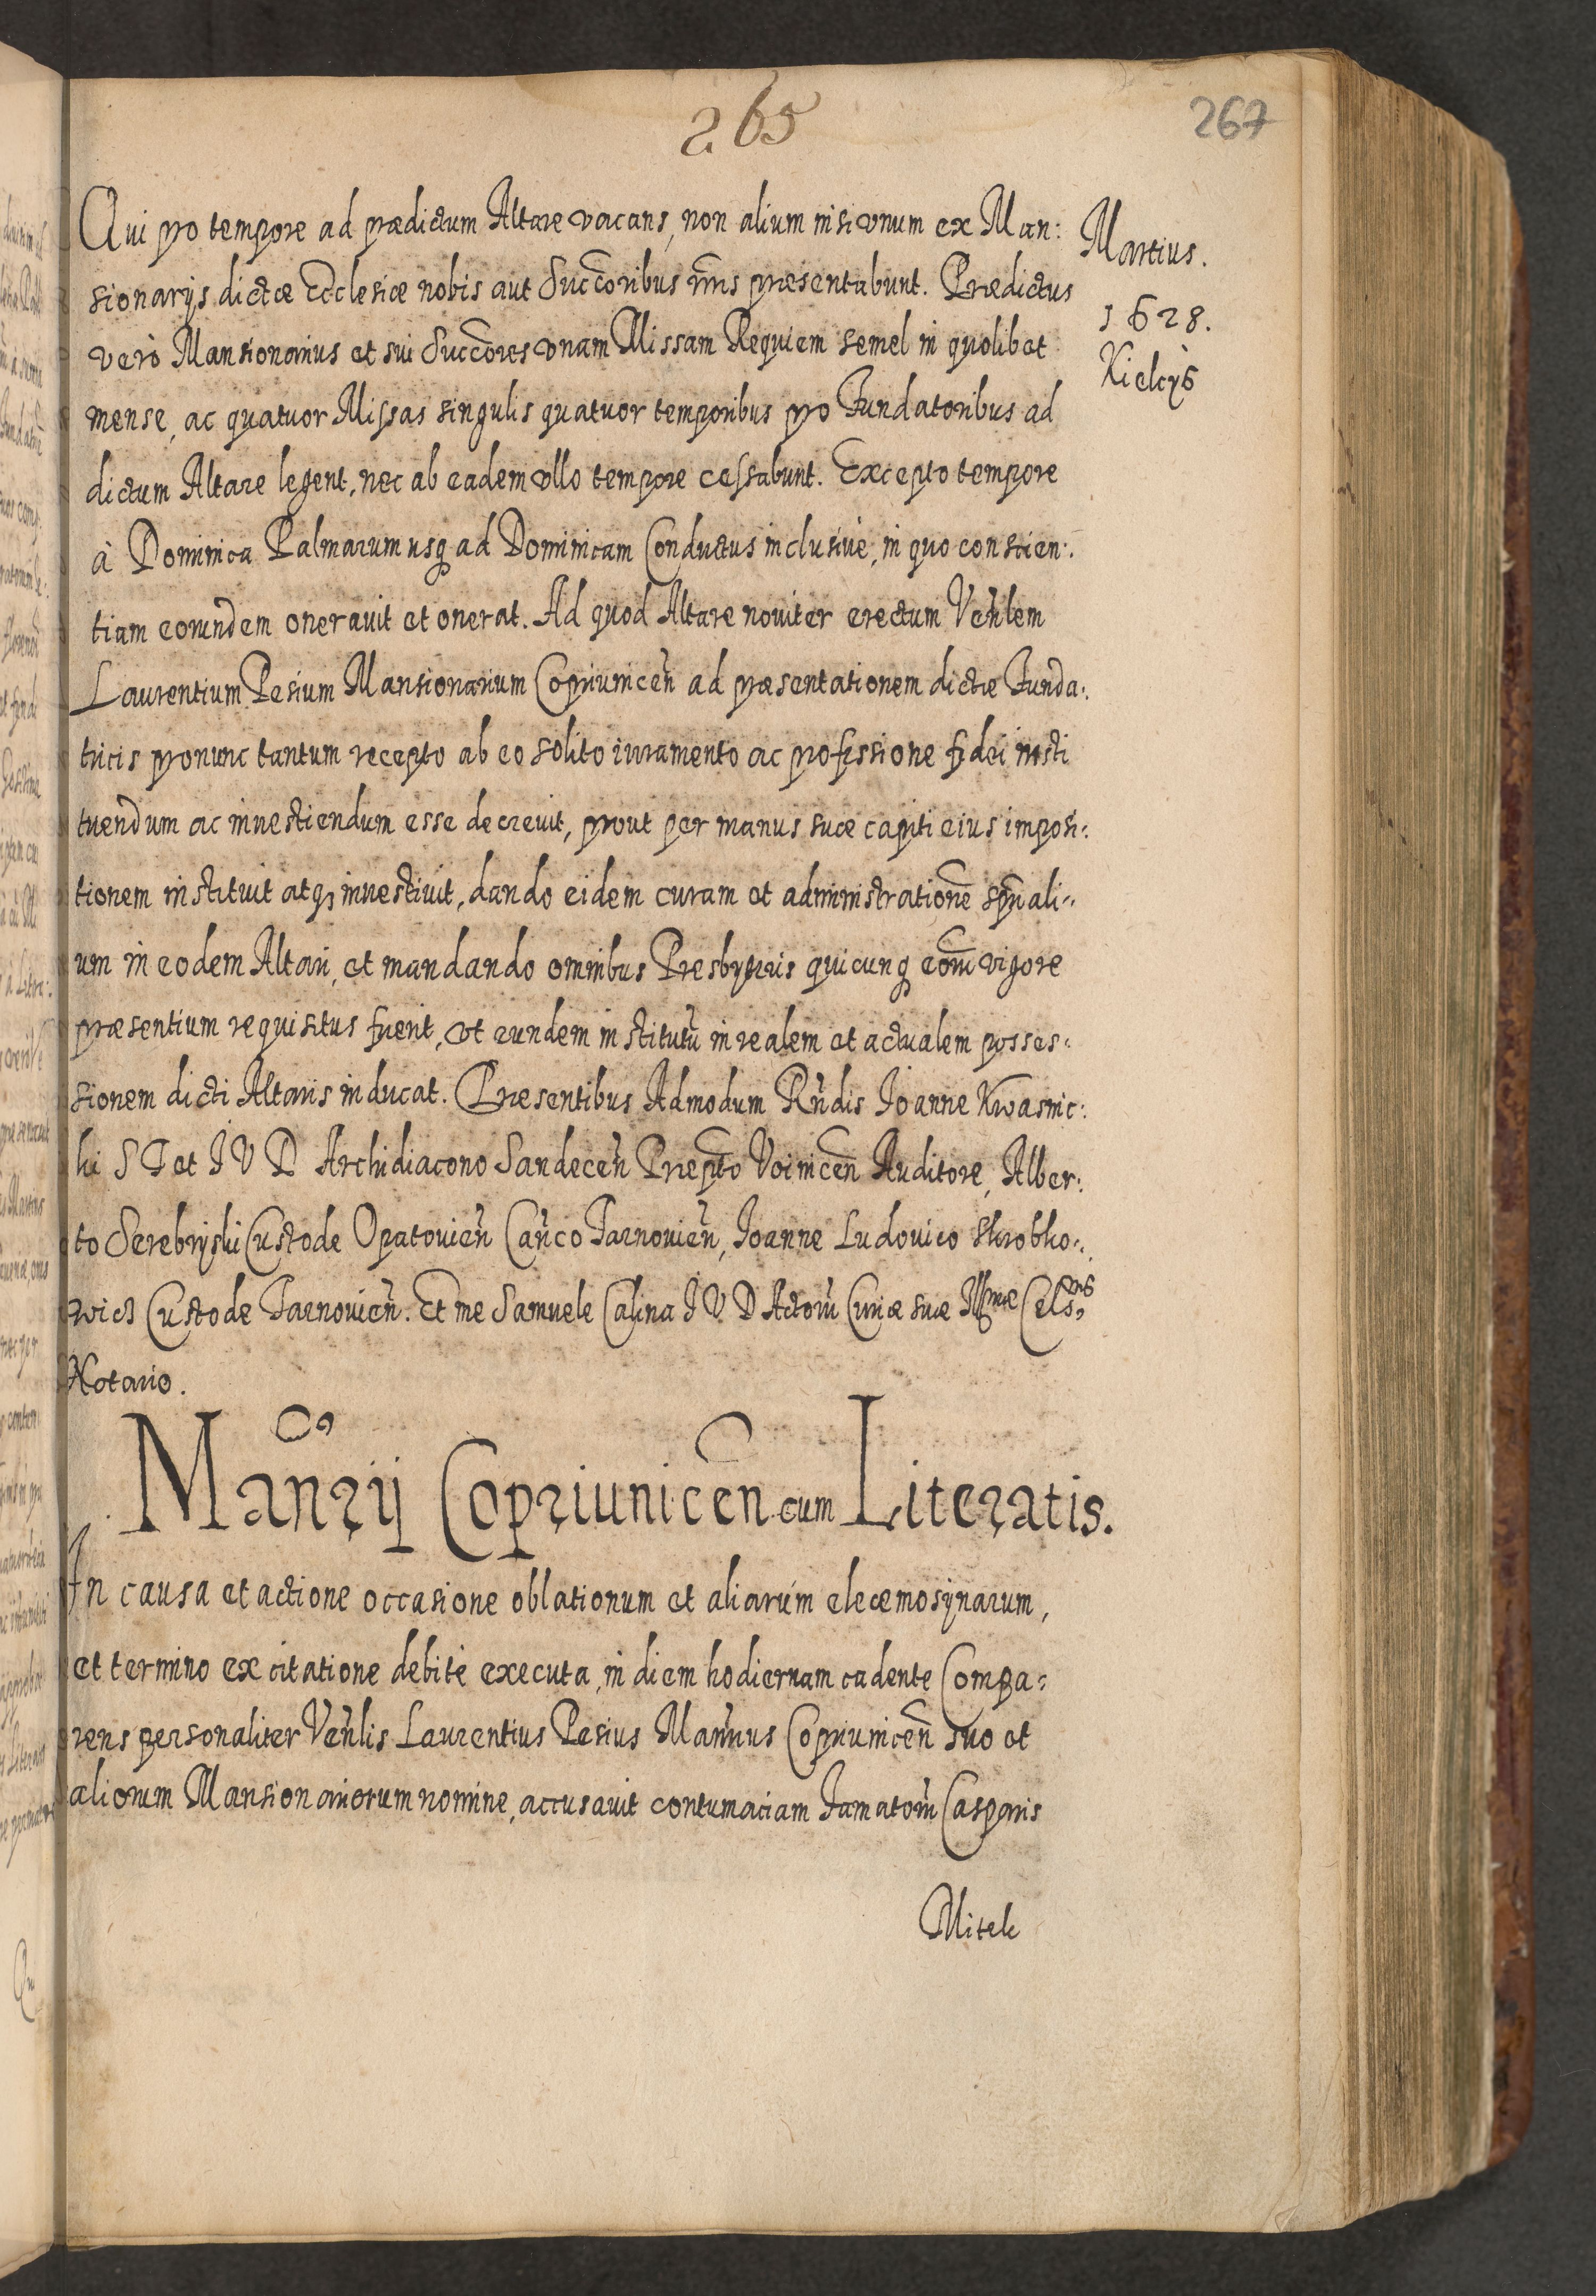 265
267
Martius.
1628.
Kielcÿs
Qui pro tempore ad prædictum Altare vacans, non alium nisi vnum ex Man:
sionarÿs dictæ Ecclesiæ nobis aut Succ̃oribus nr̃is præsentabunt. Prædictus
verò Mansionarius et sui Succ̃ores vnam Missam Requiem semel in quolibet
mense, ac quatuor Missas singulis quatuor temporibus pro Fundatoribus ad
dictum Altare legent, nec ab eadem vllo tempore cessabunt. Excepto tempore
à Dominica Palmarum usq ad Dominicam Conductus inclusiuè, in quo conscien:
tiam eorundem onerauit et onerat. Ad quod Altare nouiter erectum Veñlem
Laurentium Pesium Mansionarium Copriunicen̄ ad præsentationem dictæ Funda:
tricis pronunc tantum recepto ab eo solito iuramento ac professione fidei insti
tuendum ac inuestiendum esse decreuit, prout per manus suæ capiti eius imposi:
tionem instituit atq; inuestiuit, dando eidem curam et administratione͂ spũali:
um in eodem Altari, et mandando omnibus Presbyteris quicunq eorũ vigore
præsentium requisitus fuerit, vt eundem institutũ in realem et actualem posses:
sionem dicti Altaris inducat. Præsentibus Admodum Rñdis Ioanne Kwasnic:
ki S T et I V D Archidiacono Sandecen̄ Præpt̃o Voinicen̄ Auditore, Alber:
to Serebrÿski Custode Opatouien̄ Cañco Tarnouien̄, Ioanne Ludouico Skrobko:
wicz Custode Tarnouien̄. Et me Samuele Calina I V D Actorũ Curiæ suæ Illmæ Cels:nis
Notario.
Manrij Copriunicen̄ cum Literatis.
In causa et actione occasione oblationum et aliarum eleemosÿnarum,
et termino ex citatione debitè executa, in diem hodiernam cadente Compa:
rens personaliter Veñlis Laurentius Pesius Mañrius Copriunicen̄ suo et
aliorum Mansionariorum nomine, accusauit contumaciam Famatorũ Casparis
Mitek